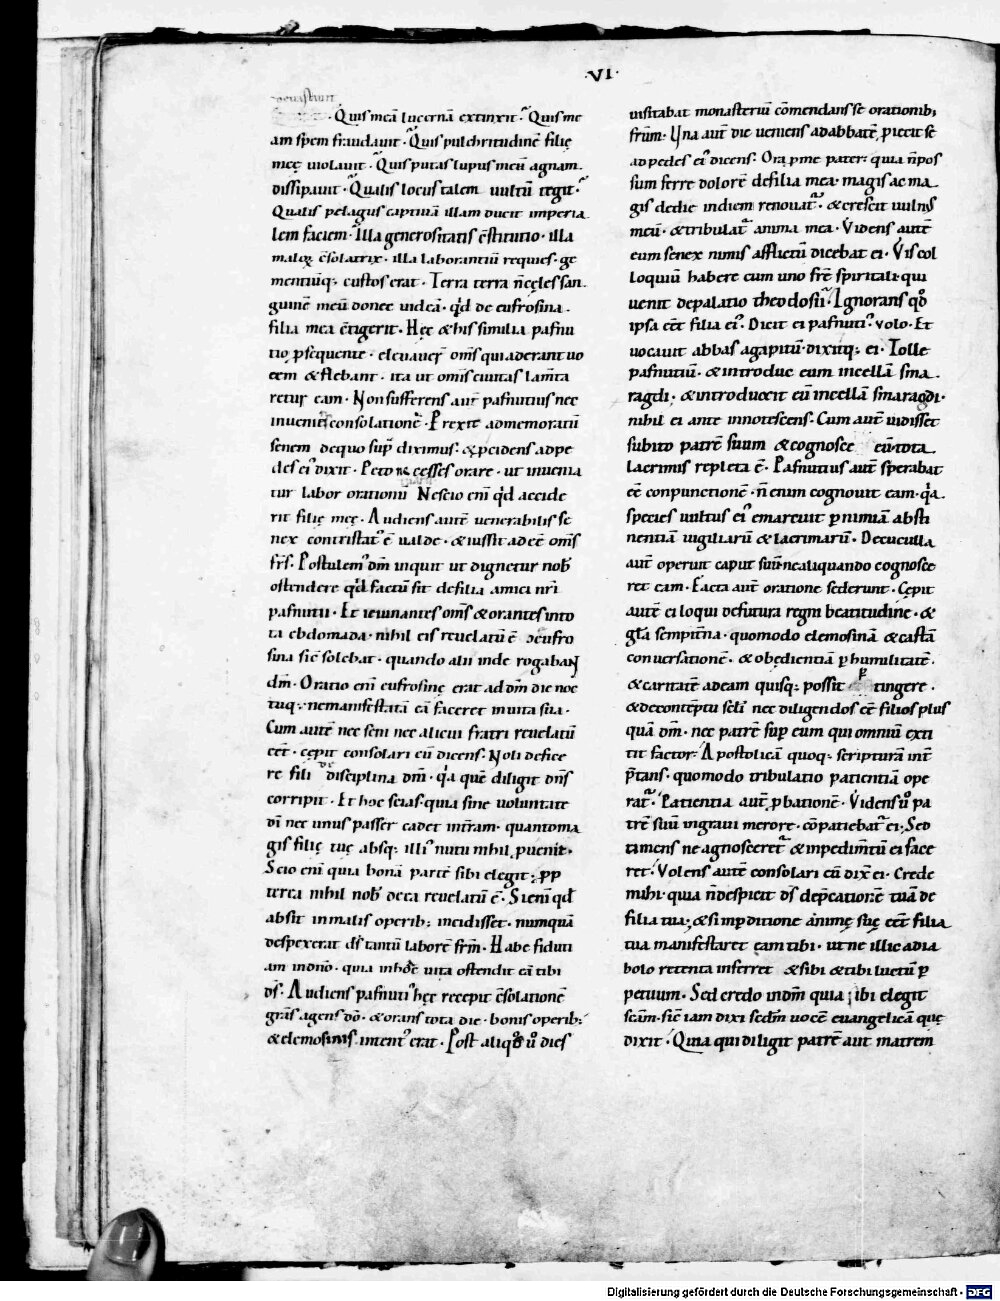 ·VI·
· Quis meā lucernā extinxit · Quis me
am spem fraudauit · Quis pulchritudinē filię
meę uiolauit · Quis putas lupus meū agnam
dissipauit · Qualis locus talem uultū tegit ·
Qualis pelagus captiuā illam ducit imperia
lem faciem · Illa generositatis c̄stitutio · illa
c̄solatrix · illa laborantiū requies · ge
mentiūq; custos erat · Terra terra n̄ celes san
guinē meū donec uideā · qͥd de eufrosina
filia mea c̄tigerit · Hęc & his similia pafnu
tio ꝓsequente · eleuauer̄ om̄s qui aderant uo
cem & flebant · ita ut om̄is ciuitas lam̄ta
retur eam · Non sufferens aut̄ pafnutius nec
inueniēs consolationē · Prexit ad memoratū
senem de quo sup̄ diximus · & ꝓcidens ad pe
des ei᾽ dixit · Peto ne cesses orare · ut inuenia
tur labor orationū Nescio eni qͥd accide
rit filię meę · Audiens autē uenerabilis se
nex contristat᾽ ē ualde · & iussit adeē om̄s
fr̄s · Postulem᾽ dm̄ inquit ut dignetur nob̄
ostendere qͥd factū sit de filia amici nr̄i
pafnutii · Et ieiunantes om̄s & orantes in to
ta ebdomada · nihil eis reuelatū ē de eufro
sina sic̄ solebat · quando alii inde rogabaɴ
dm̄ · Oratio eni eufrosinę erat ad dm̄ die noc
tuq; · ne manifestatā eā faceret in uita sua ·
Cum autē nec seni nec alicui fratri reuelatū
eēt · cępit consolari eū dicens · Noli defice
re fili de disciplina dm̄ · qͥa quē diligit dn̄s
corripit · Et hoc scias quia sine uoluntate
dī nec unus passer cadet in tr̄am · quanto ma
gis filię tuę absq; illi᾽ nutu nihil ꝓuenit ·
Scio eni quia bonā partē sibi elegit · ꝓp
terea nihil nob̄ de ea reuelatū ē · Si eni qͩ
absit in malis operib; incidisset · numquā
despexerat ds̄ tantū laborē fr̄m · Habe fiduti
am in dn̄o · quia in hoc uita ostendit eā tibi
ds̄ · Audiens pafnuti᾽ hęc recepit c̄solationē
grās agens dō · & orans tota die · bonis operib;
& elemosinis intent᾽ erat · Post aliqͦs ū dies
uisitabat monasteriū cōmendans se orationib;
fr̄um · Una aut̄ die ueniens ad abbatē ꝓiecit se
ad pedes ei᾽ dicens · Ora ꝓ me pater · quia n̄ pos
sum ferre dolorē de filia mea · magis ac ma
gis de die in diem renouat᾽ · & crescit uuln᾽
meū · & tribulat᾽ anima mea · Videns autē
eum senex nimis afflictū dicebat ei · Vis col
loquiū habere cum uno frē spiritali · qui
uenit de palatio theodosii · Ignorans qͩ
ipsa eēt filia ei᾽ · Dicit ei pafnuti᾽ · volo · Et
uocauit abbas agapitū · dixitq; ei · Tolle
pafnutiū · & introduc eum in cellā sma
ragdi · & introduxit eū in cellā smaragdi ·
nihil ei ante innotescens · Cum autē uidisset
subito patrē suum & cognosce eū · tota
lacrimis repleta ē · Pafnutius autē sperabat
eē conpunctionē · n̄ enim cognouit eam · qͥa
species uultus ei᾽ emarcuit ꝑ nimiā absti
nentiā uigiliarū & lacrimarū · De cuculla
aut̄ operuit caput suū · ne aliquando cognosce
ret eam · Facta aut̄ oratione sederunt · Cępit
autē ei loqui de futura regni beatitudine · &
gl̄a sempit̄na · quomodo elemosinā & castā
conuersationē · & obędientiā ꝑ humilitatē ·
& caritatē ad eam quisq; possit ꝑtingere ·
& de contēptu scl̄i nec diligendos eē filios plus
quā dm̄ · nec patrē sup̄ eum qui omniū exti
tit factor · Apostolicā quoq; scripturā int̄
p̄tans · quomodo tribulatio patientiā ope
rat᾽ · Patientia aut̄ ꝓbationē · Videns ū pa
trē suū in graui merore · cōpatiebat᾽ ei · Sed
tamens ne agnosceret᾽ & inpedim̄tū ei face
ret · Volens autē consolari eū dix̄ ei · Crede
mihi · quia n̄ despicit ds̄ dep̄cationē tuā de
filia tua · & si in ꝑditione animę suę eēt filia
tua manifestaret eam tibi · ut ne illic a dia
bolo retenta inferret & sibi & tibi luctū ꝑ
petuum · Sed credo in dm̄ quia ibi elegit
scām · sic̄ iam dixi scdm̄ uocē euangelicā quę
dixit · Quia qui diligit patrē aut matrem
Digitalisierung gefördert durch die Deutsche Forschungsgemeinschaft · DFG